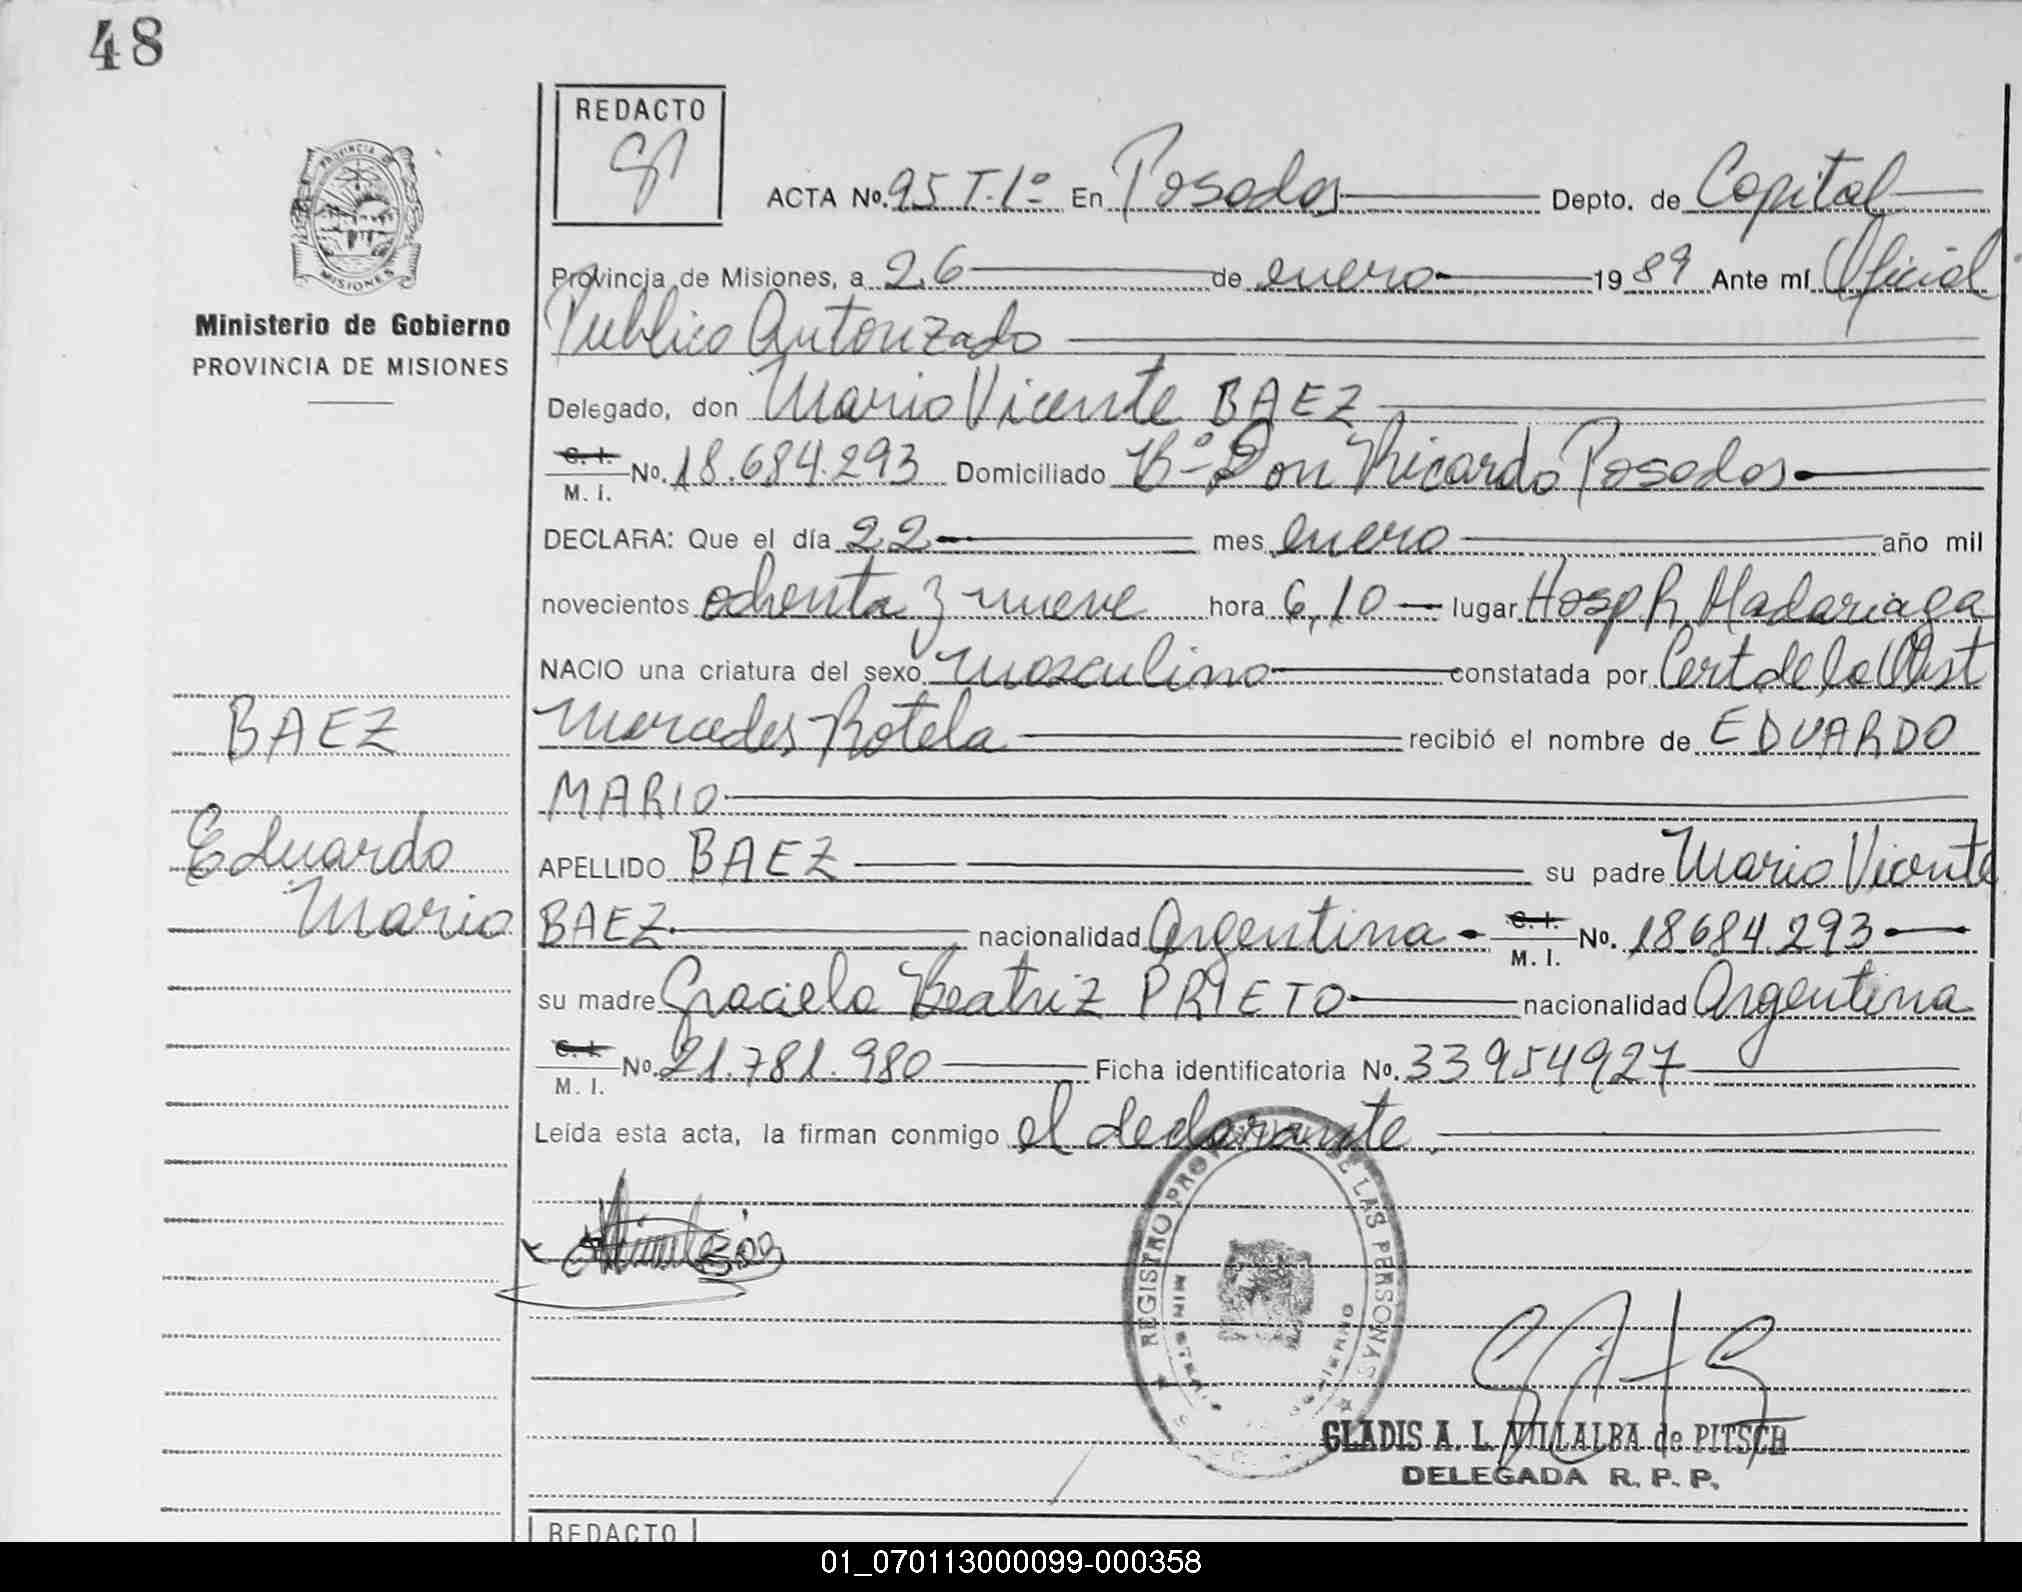 48
REDACTO
PROVINCIA DE
MISIONES
Ministerio de Gobierno
PROVINCIA DE MISIONES
ACTA No. 95 T.1º En Posadas Depto. de Capital
Provincia de Misiones, a 26 de enero 1989 Ante mí Oficial
Publico Autorizado
Delegado, don Mario Vicente BAEZ
C. I. M. I. No. 18.684.293 Domiciliado Bº Don Ricardo Posadas
DECLARA: Que el día 22 mes enero año mil
novecientos ochenta y nueve hora 6,10 lugar Hosp R. Madariaga
NACIO una criatura del sexo masculino constatada por Cert de la Obst
Mercedes Rotela recibió el nombre de EDUARDO
MARIO
APELLIDO BAEZ su padre Mario Vicente
BAEZ nacionalidad Argentina C. I. M. I. No. 18684.293
su madre Graciela Beatriz PRIETO nacionalidad Argentina
C. I. M. I. No. 21.781.980 Ficha identificatoria No. 33954927
Leída esta acta, la firman conmigo el declarante
BAEZ
Eduardo
Mario
REGISTRO PROVINCIAL DE LAS PERSONAS
GLADIS A. L. VILLALBA de PITSCH
DELEGADA R. P. P.
REDACTO
01_070113000099-000358